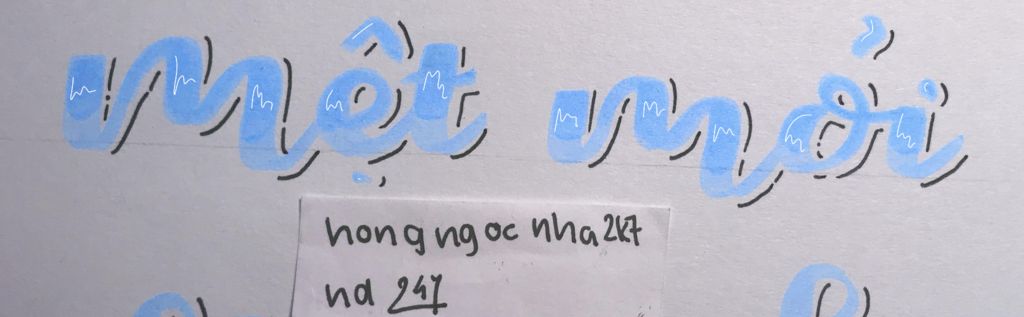 mệt mỏi
hongngoc nha 2k7
nd 247